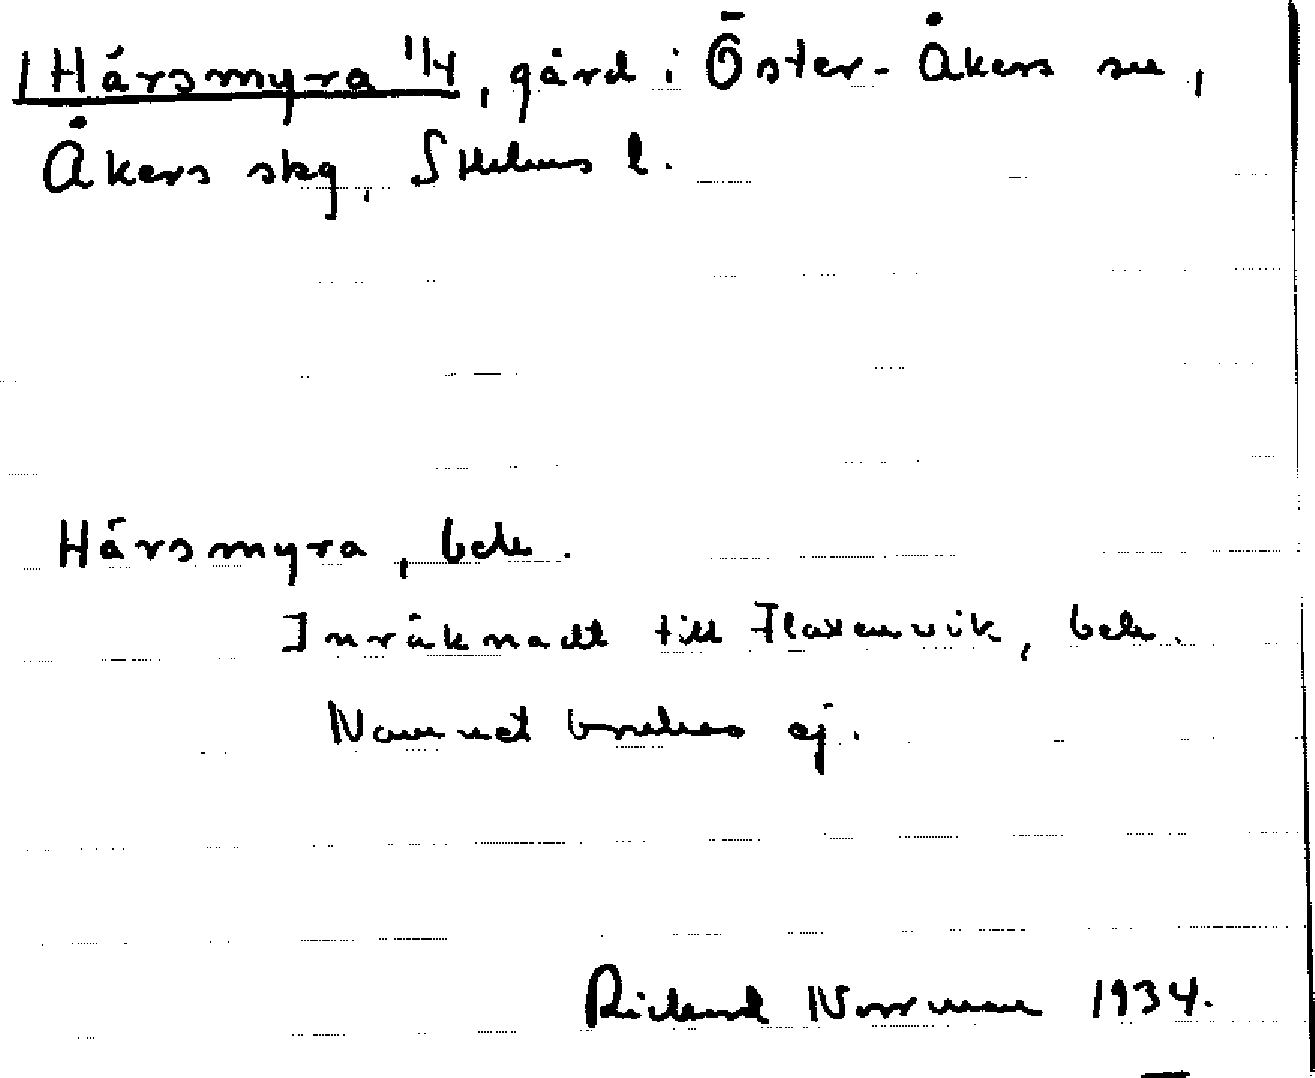 Hårsmyra 1/4, gård i Öster-Åkers sn,
Åkers skg, Sthlms l.
Hårsmyra, beb.
Inräknadt till Flaxenvik, beb.
Namnet brukas ej.
Rickard Norrman 1934.